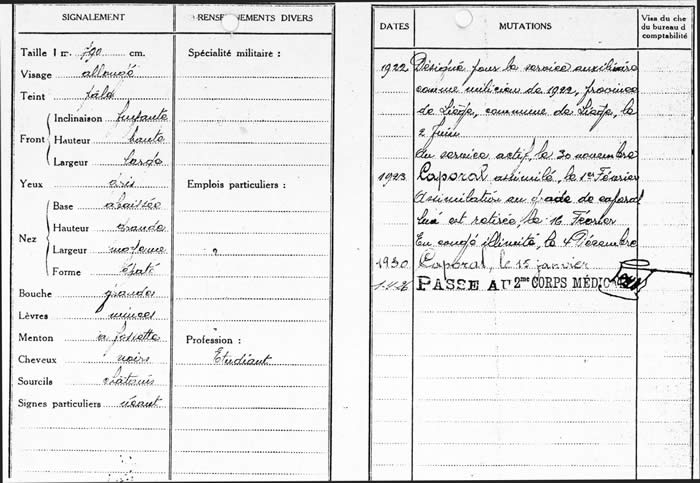 SIGNALEMENT
Taille 1 m. 790 cm.
Visage allongé
Teint pâle
Front
Inclinaison fuyante
Hauteur haute
Largeur large
Yeux gris
Nez
Base abaissée
Hauteur grande
Largeur moyenne
Forme épaté
Bouche grande
Lèvres minces
Menton à fossette
Cheveux noirs
Sourcils châtains
Signes particuliers néant
RENSEIGNEMENTS DIVERS
Spécialité militaire :
Emplois particuliers :
Profession :
Etudiant
DATES
MUTATIONS
Visa du che
du bureau d
comptabilité
1922 Désigné pour le service auxiliaire
comme milicien de 1922, province
de Liége, commune de Liége, le
2 Juin
Au service actif, le 30 novembre
1923 Caporal assimilé, le 1er Février
Assimilation au grade de caporal
lui est retirée, le 16 Février
En congé illimité, le 4 Décembre
1930 Caporal, le 15 janvier
PASSE AU 2me CORPS MÉDIC